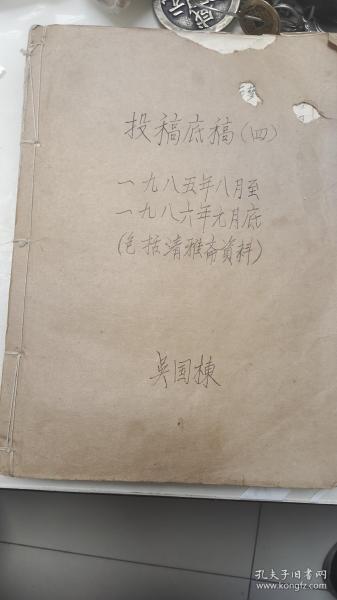 投稿底稿(四)
一九八五年八月至
一九八六年元月底
(包括清雅斋資料)
吴国棟
孔夫子旧书网
www.kongfz.com